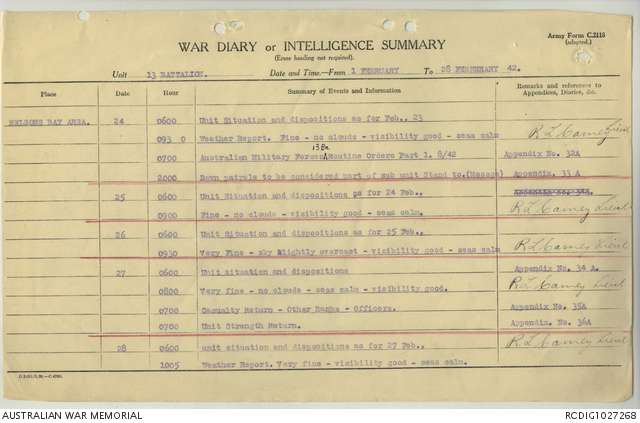 Army Form C.2118
(adapted.)
WAR DIARY or INTELLIGENCE SUMMARY
(Erase heading not required).
Unit 13 BATTALION. Date and Time—From 1 FEBRUARY To 28 FEBRUARY 42.
Place Date Hour Summary of Events and Information Remarks and reference to Appendices, Diaries, &c.
NELSONS BAY AREA. 24 0600 Unit Situation and dispositions as for Feb., 23
093 0 Weather Report. Fine - no clouds - visibility good - seas calm R L Carney Lieut
13Bn
0700 Australian Military Forces Routine Orders Part 1. 8/42 Appendix No. 32A
2000 Dawn patrols to be considered part of sub unit Stand to. Appendix. 33 A
25 0600 Unit Situation and dispositions as for 24 Feb.,
0900 Fine - no clouds - visibility good - seas calm. R L Carney Lieut
26 0600 Unit Situation and dispositions as for 25 Feb.,
0930 Very Fine - sky slightly overcast - visibility good - seas calm R L Carney Lieut
27 0600 Unit situation and dispositions Appendix No. 34 A.
0800 Very fine - no clouds - seas calm - visibility good. R L Carney Lieut
0700 Casualty Return - Other Ranks - Officers. Appendix No. 35A
0700 Unit Strength Return. Appendix. No. 36A
28 0600 unit situation and dispositions as for 27 Feb., R L Carney Lieut
1005 Weather Report. Very fine - visibility good - seas calm.
AUSTRALIAN WAR MEMORIAL RCDIG1027268